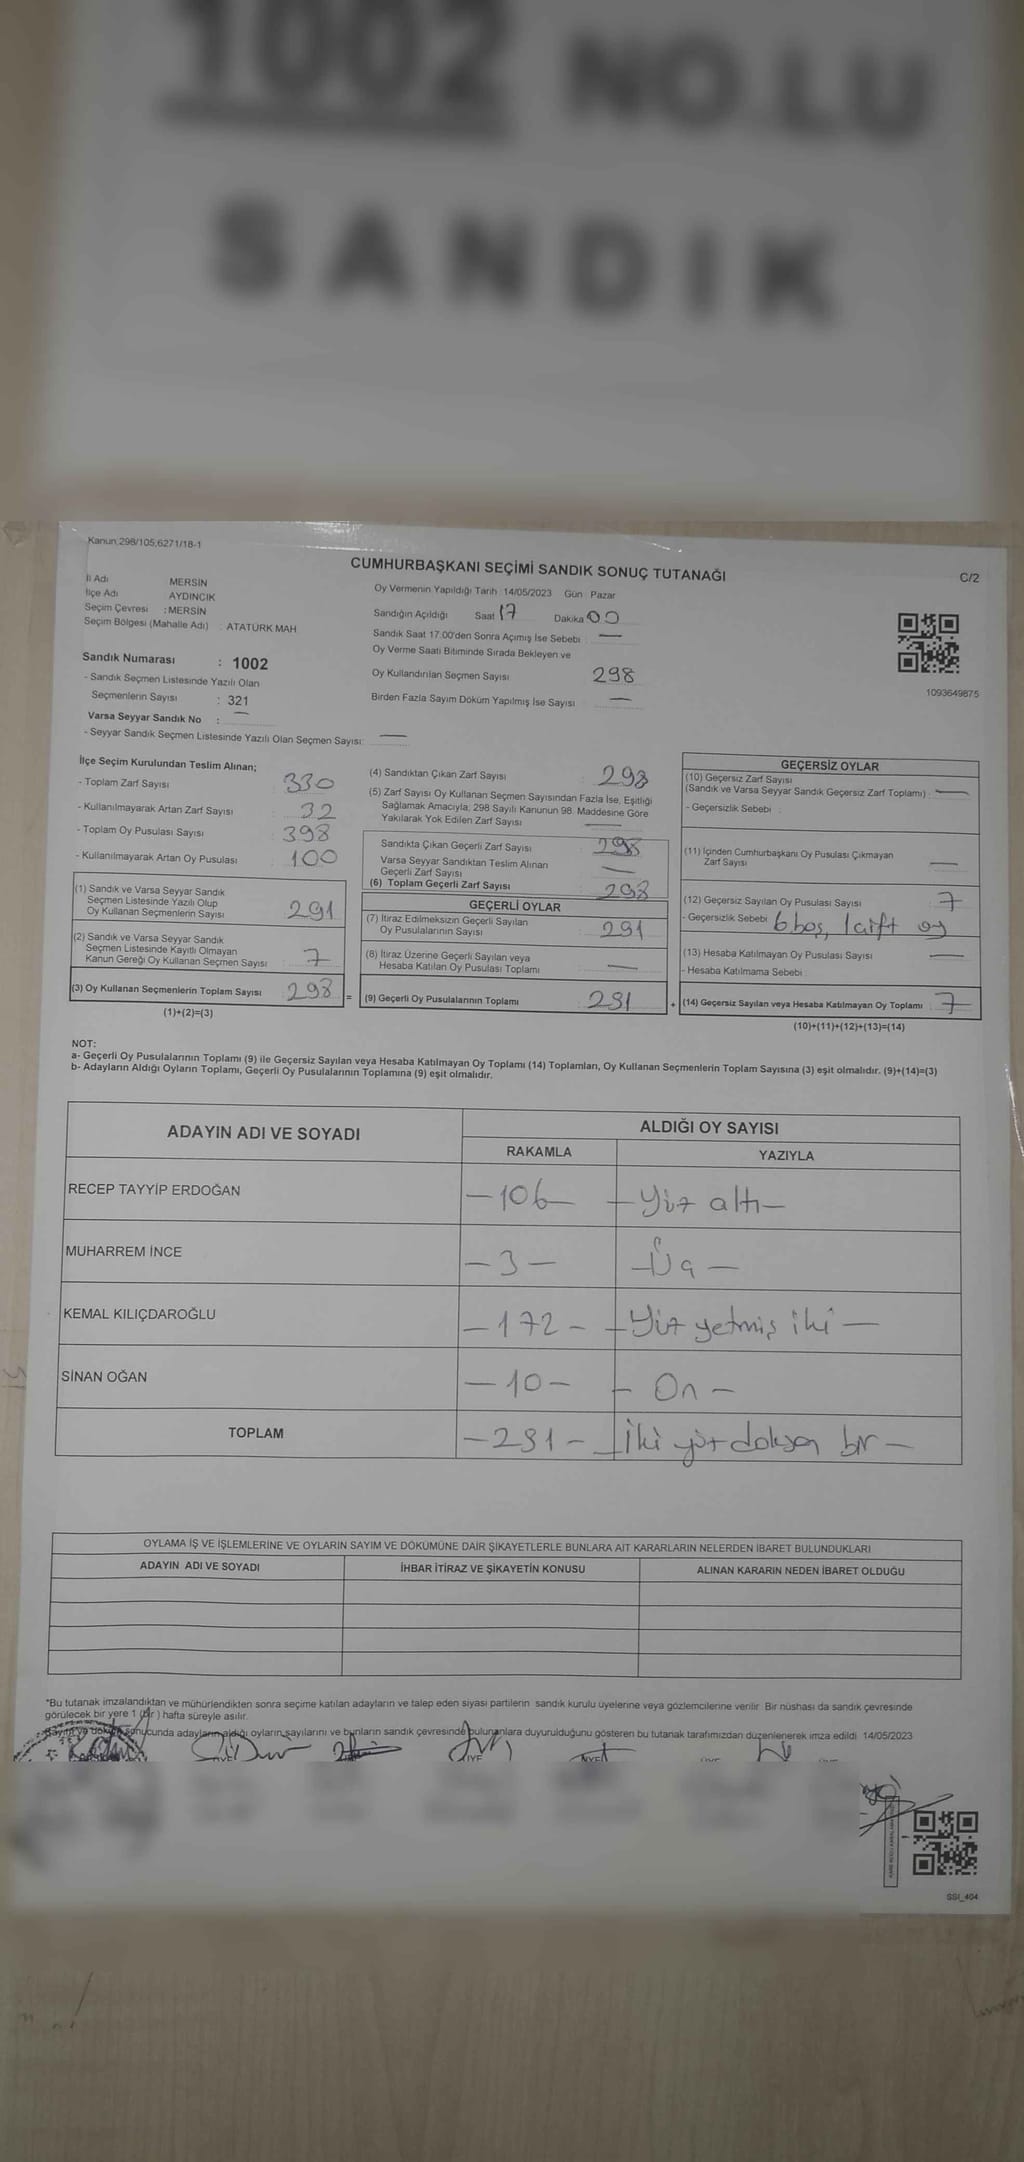 1002 NO.LU
SANDIK
Kanun 298/105,6271/18-1
CUMHURBAŞKANI SEÇİMİ SANDIK SONUÇ TUTANAĞI
C/2
İl Adı MERSİN
İlçe Adı AYDINCIK
Seçim Çevresi : MERSİN
Seçim Bölgesi (Mahalle Adı) : ATATÜRK MAH
Sandık Numarası : 1002
- Sandık Seçmen Listesinde Yazılı Olan
Seçmenlerin Sayısı : 321
Varsa Seyyar Sandık No : —
- Seyyar Sandık Seçmen Listesinde Yazılı Olan Seçmen Sayısı: —
Oy Vermenin Yapıldığı Tarih : 14/05/2023 Gün : Pazar
Sandığın Açıldığı Saat 17 Dakika 00
Sandık Saat 17.00'den Sonra Açımış İse Sebebi : —
Oy Verme Saati Bitiminde Sırada Bekleyen ve
Oy Kullandırılan Seçmen Sayısı 298
Birden Fazla Sayım Döküm Yapılmış İse Sayısı —
1093649875
İlçe Seçim Kurulundan Teslim Alınan;
- Toplam Zarf Sayısı : 330
- Kullanılmayarak Artan Zarf Sayısı : 32
- Toplam Oy Pusulası Sayısı : 398
- Kullanılmayarak Artan Oy Pusulası : 100
(1) Sandık ve Varsa Seyyar Sandık
Seçmen Listesinde Yazılı Olup
Oy Kullanan Seçmenlerin Sayısı : 291
(2) Sandık ve Varsa Seyyar Sandık
Seçmen Listesinde Kayıtlı Olmayan
Kanun Gereği Oy Kullanan Seçmen Sayısı : 7
(3) Oy Kullanan Seçmenlerin Toplam Sayısı : 298 =
(1)+(2)=(3)
(4) Sandıktan Çıkan Zarf Sayısı : 298
(5) Zarf Sayısı Oy Kullanan Seçmen Sayısından Fazla İse, Eşitliği
Sağlamak Amacıyla; 298 Sayılı Kanunun 98. Maddesine Göre
Yakılarak Yok Edilen Zarf Sayısı : —
Sandıkta Çıkan Geçerli Zarf Sayısı : 298
Varsa Seyyar Sandıktan Teslim Alınan
Geçerli Zarf Sayısı : —
(6) Toplam Geçerli Zarf Sayısı : 298
GEÇERLİ OYLAR
(7) İtiraz Edilmeksizin Geçerli Sayılan
Oy Pusulalarının Sayısı : 291
(8) İtiraz Üzerine Geçerli Sayılan veya
Hesaba Katılan Oy Pusulası Toplamı : —
(9) Geçerli Oy Pusulalarının Toplamı : 291 +
GEÇERSİZ OYLAR
(10) Geçersiz Zarf Sayısı
(Sandık ve Varsa Seyyar Sandık Geçersiz Zarf Toplamı) : —
- Geçersizlik Sebebi :
(11) İçinden Cumhurbaşkanı Oy Pusulası Çıkmayan
Zarf Sayısı : —
(12) Geçersiz Sayılan Oy Pusulası Sayısı : 7
- Geçersizlik Sebebi : 6 boş, 1 çift oy
(13) Hesaba Katılmayan Oy Pusulası Sayısı : —
- Hesaba Katılmama Sebebi :
(14) Geçersiz Sayılan veya Hesaba Katılmayan Oy Toplamı : 7
(10)+(11)+(12)+(13)=(14)
NOT:
a- Geçerli Oy Pusulalarının Toplamı (9) ile Geçersiz Sayılan veya Hesaba Katılmayan Oy Toplamı (14) Toplamları, Oy Kullanan Seçmenlerin Toplam Sayısına (3) eşit olmalıdır. (9)+(14)=(3)
b- Adayların Aldığı Oyların Toplamı, Geçerli Oy Pusulalarının Toplamına (9) eşit olmalıdır.
ADAYIN ADI VE SOYADI ALDIĞI OY SAYISI
RAKAMLA YAZIYLA
RECEP TAYYİP ERDOĞAN —106— —Yüz altı—
MUHARREM İNCE —3— —Üç—
KEMAL KILIÇDAROĞLU —172— —Yüz yetmiş iki—
SİNAN OĞAN —10— —On—
TOPLAM —291— —İki yüz doksan bir—
OYLAMA İŞ VE İŞLEMLERİNE VE OYLARIN SAYIM VE DÖKÜMÜNE DAİR ŞİKAYETLERLE BUNLARA AİT KARARLARIN NELERDEN İBARET BULUNDUKLARI
ADAYIN ADI VE SOYADI İHBAR İTİRAZ VE ŞİKAYETİN KONUSU ALINAN KARARIN NEDEN İBARET OLDUĞU
*Bu tutanak imzalandıktan ve mühürlendikten sonra seçime katılan adayların ve talep eden siyasi partilerin sandık kurulu üyelerine veya gözlemcilerine verilir. Bir nüshası da sandık çevresinde
görülecek bir yere 1 (bir) hafta süreyle asılır.
Sayım ve döküm sonucunda adayların aldığı oyların sayılarını ve bunların sandık çevresinde bulunanlara duyurulduğunu gösteren bu tutanak tarafımızdan düzenlenerek imza edildi 14/05/2023
SSI_404